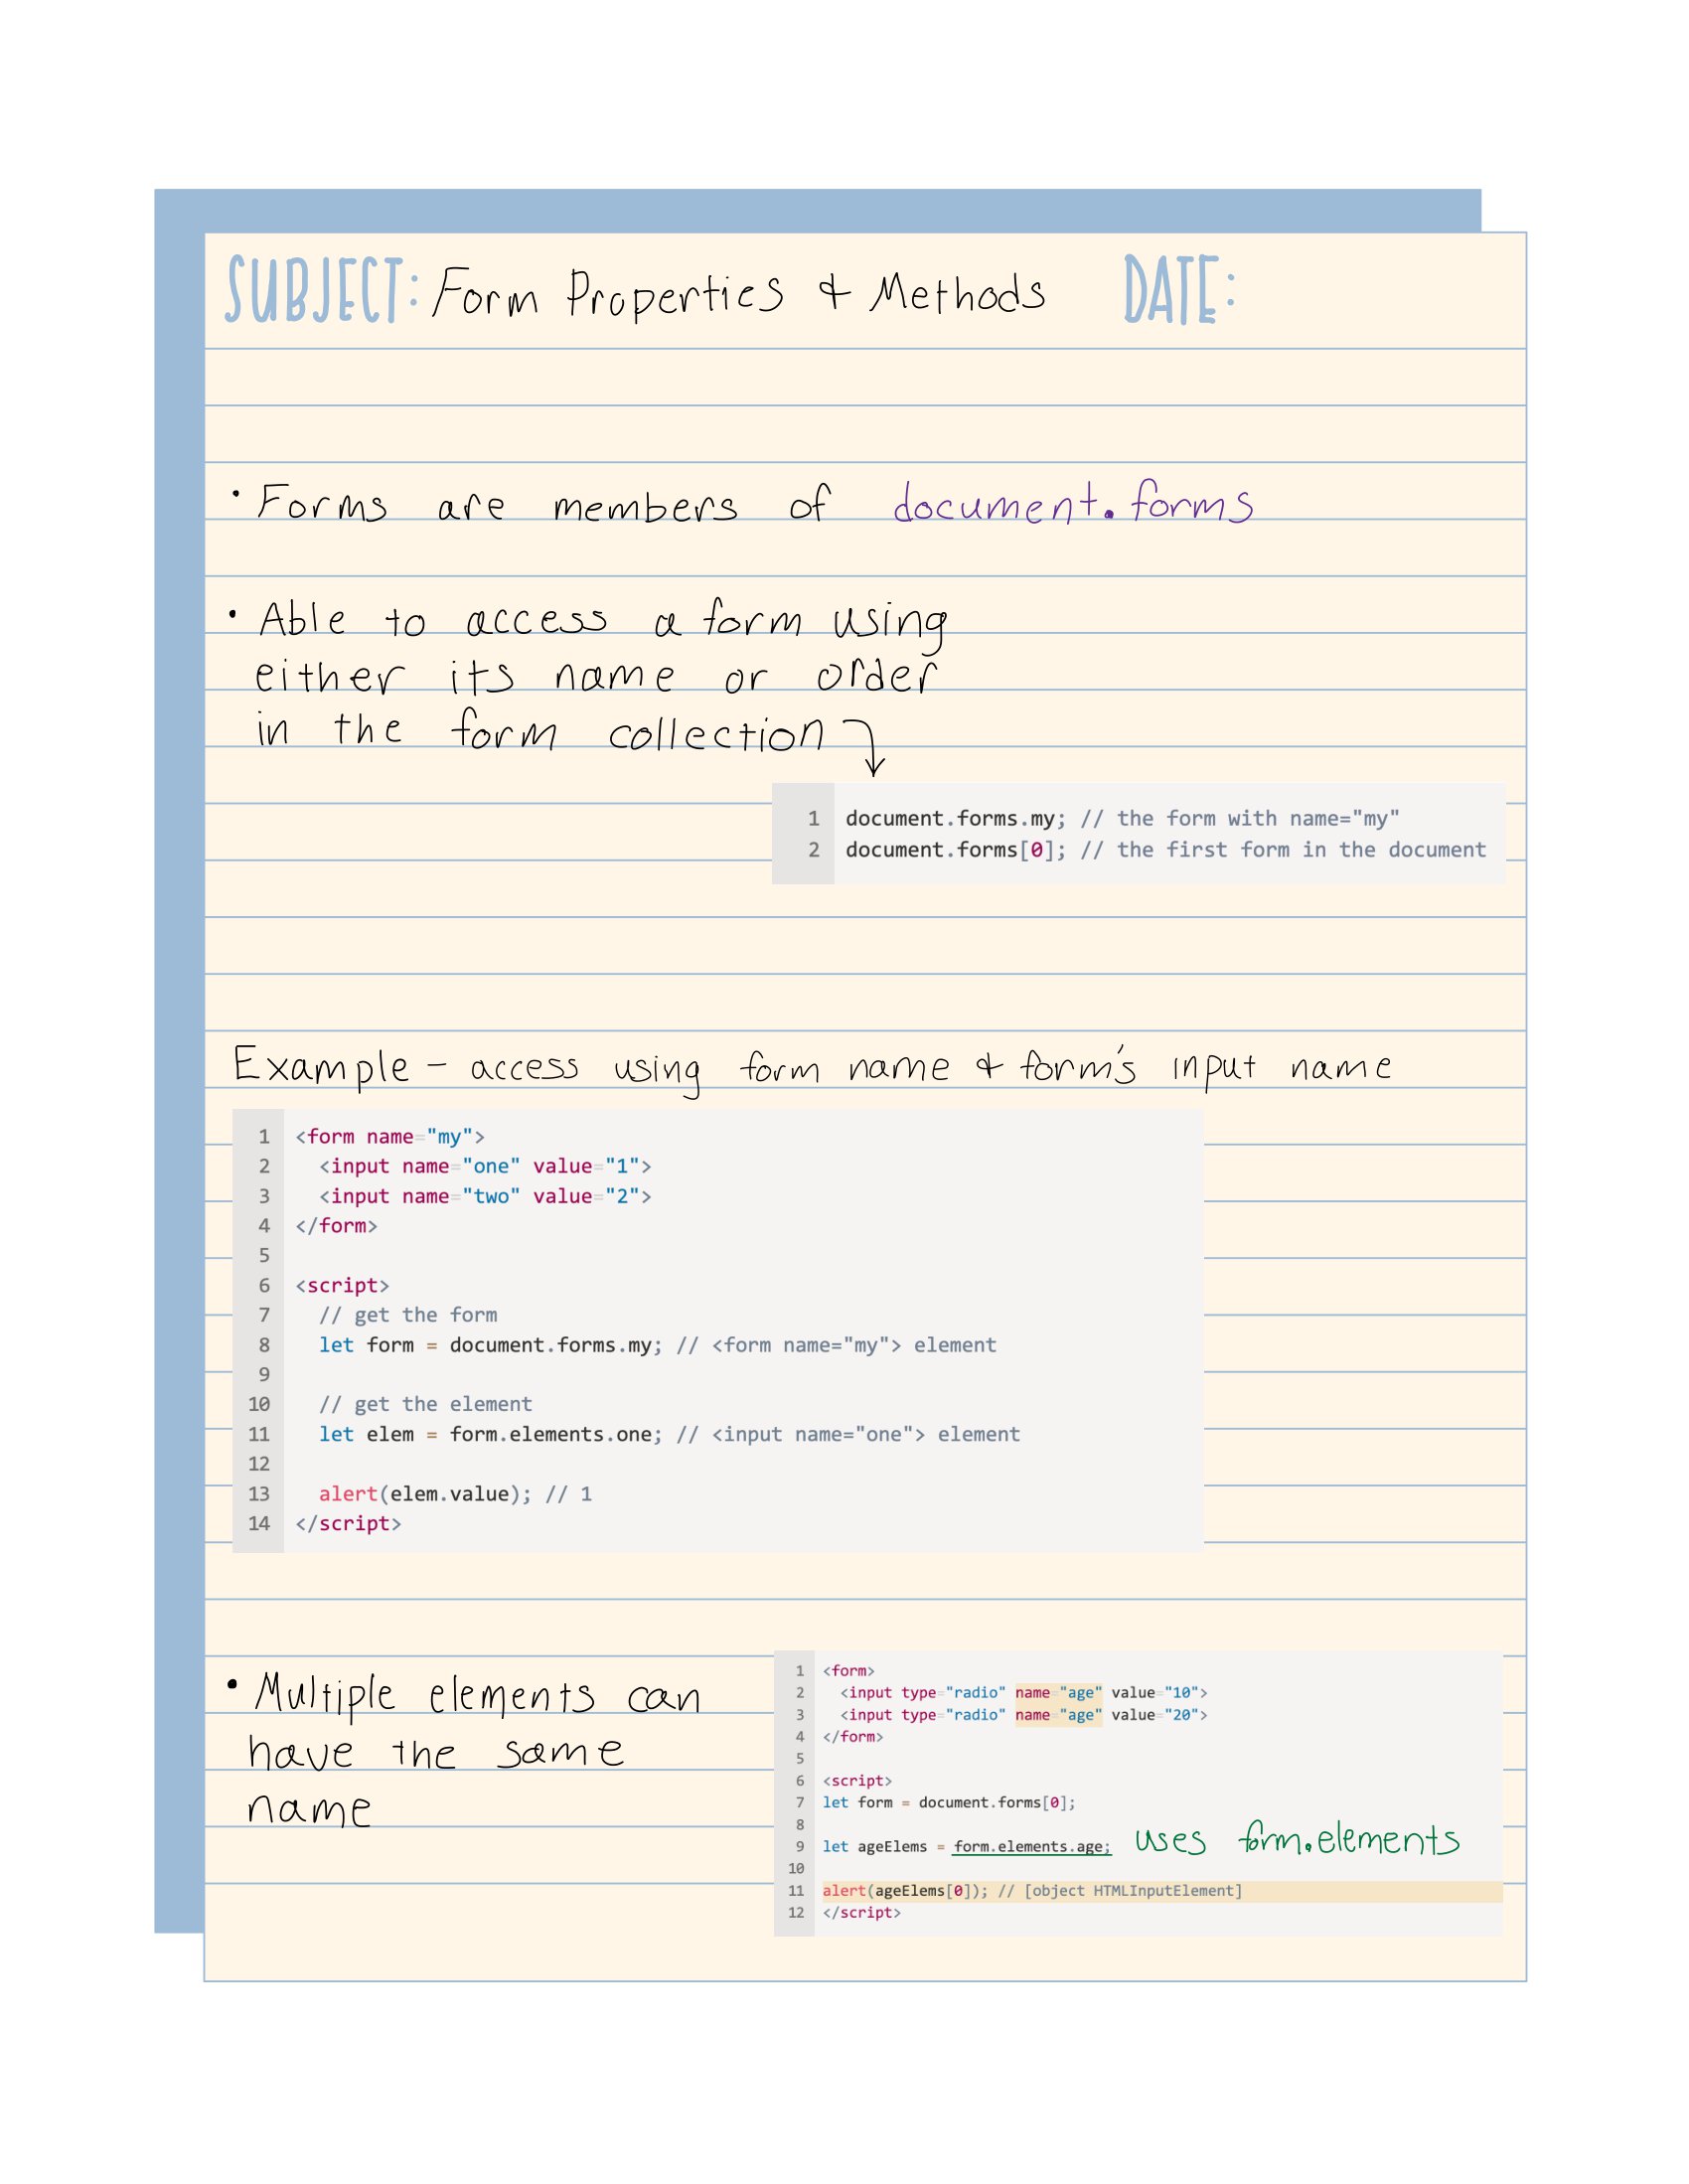 SUBJECT: Form Properties & Methods DATE:
• Forms are members of document.forms
• Able to access a form using
either its name or order
in the form collection
1 document.forms.my; // the form with name="my"
2 document.forms[0]; // the first form in the document
Example – access using form name & form's input name
1 <form name="my">
2   <input name="one" value="1">
3   <input name="two" value="2">
4 </form>
5
6 <script>
7   // get the form
8   let form = document.forms.my; // <form name="my"> element
9
10   // get the element
11   let elem = form.elements.one; // <input name="one"> element
12
13   alert(elem.value); // 1
14 </script>
• Multiple elements can
have the same
name
1 <form>
2   <input type="radio" name="age" value="10">
3   <input type="radio" name="age" value="20">
4 </form>
5
6 <script>
7 let form = document.forms[0];
8
9 let ageElems = form.elements.age; uses form.elements
10
11 alert(ageElems[0]); // [object HTMLInputElement]
12 </script>